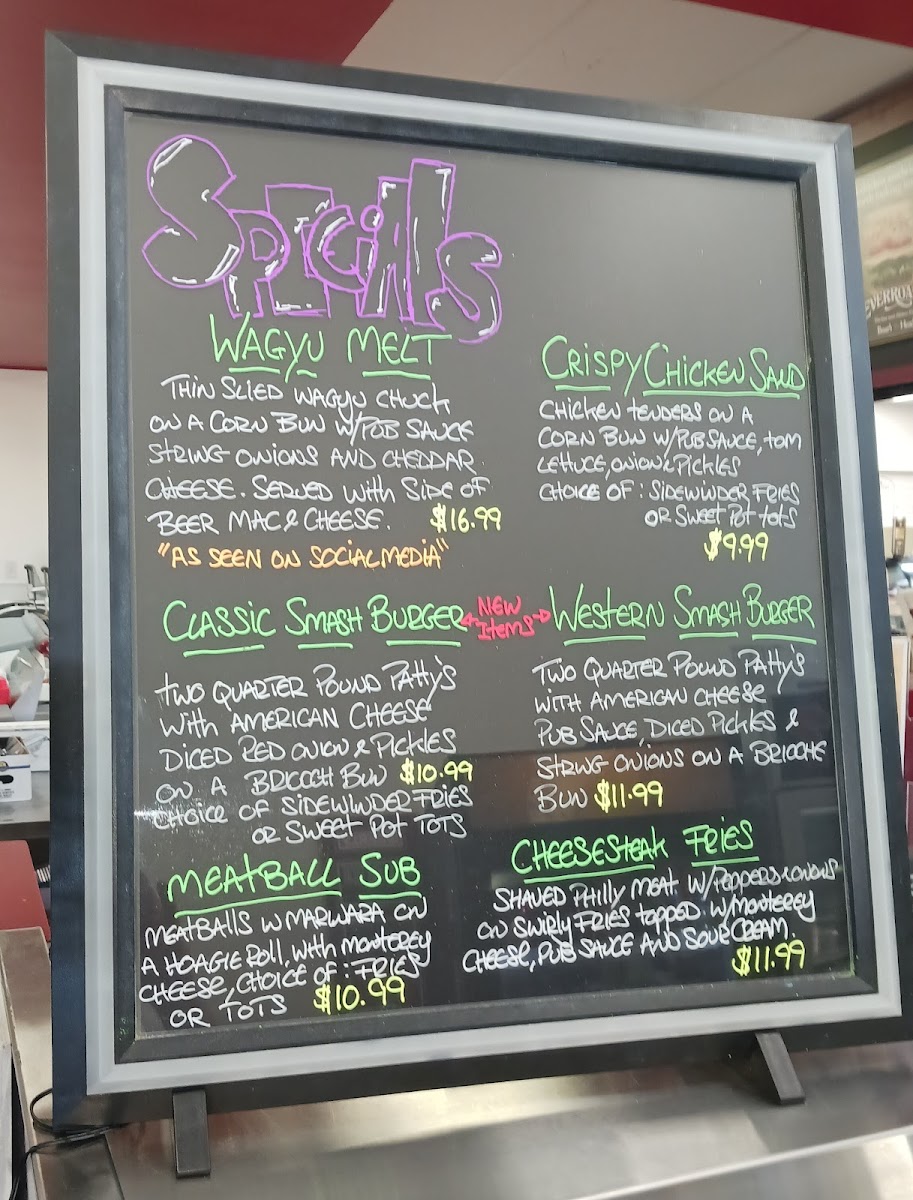 SPECiALS
WAGYU MELT
THIN SLIED WAGYU CHUCK
ON A CORN BUN W/PUB SAUCE
STRING ONIONS AND CHEDDAR
CHEESE. SERVED with SIDE OF
BEER MAC & CHEESE. $16.99
"AS SEEN ON SOCIALMEDIA"
CRISPY CHICKEN SAND
CHICKEN TENDERS ON A
CORN BUN W/PUB SAUCE, TOM
LETTUCE, ONION & PICKLES
CHOICE OF : SIDEWINDER FRIES
OR SWEET POT TOTS
$9.99
NEW
Items
CLASSIC SMASH BURGER
TWO QUARTER POUND PATTY'S
With AMERICAN CHEESE
DICED RED ONION & PICKLES
ON A BRIOCH BUN $10.99
CHOICE OF SIDEWINDER FRIES
OR SWEET POT TOTS
WESTERN SMASH BURGER
TWO QUARTER POUND PATTY'S
WITH AMERICAN CHEESE
PUB SAUCE, DICED PICKLES &
STRING ONIONS ON A BRIOCHE
BUN $11.99
MEATBALL SUB
MEATBALLS W MARINARA ON
A HOAGIE ROLL, with MONTEREY
CHEESE, CHOICE OF : FRIES
OR TOTS $10.99
CHEESESTEAK FRIES
SHAVED PHILLY MEAT W/PEPPERS & ONIONS
ON SWIRLY FRIES TOPPED W/MONTEREY
CHEESE, PUB SAUCE AND SOUR CREAM.
$11.99